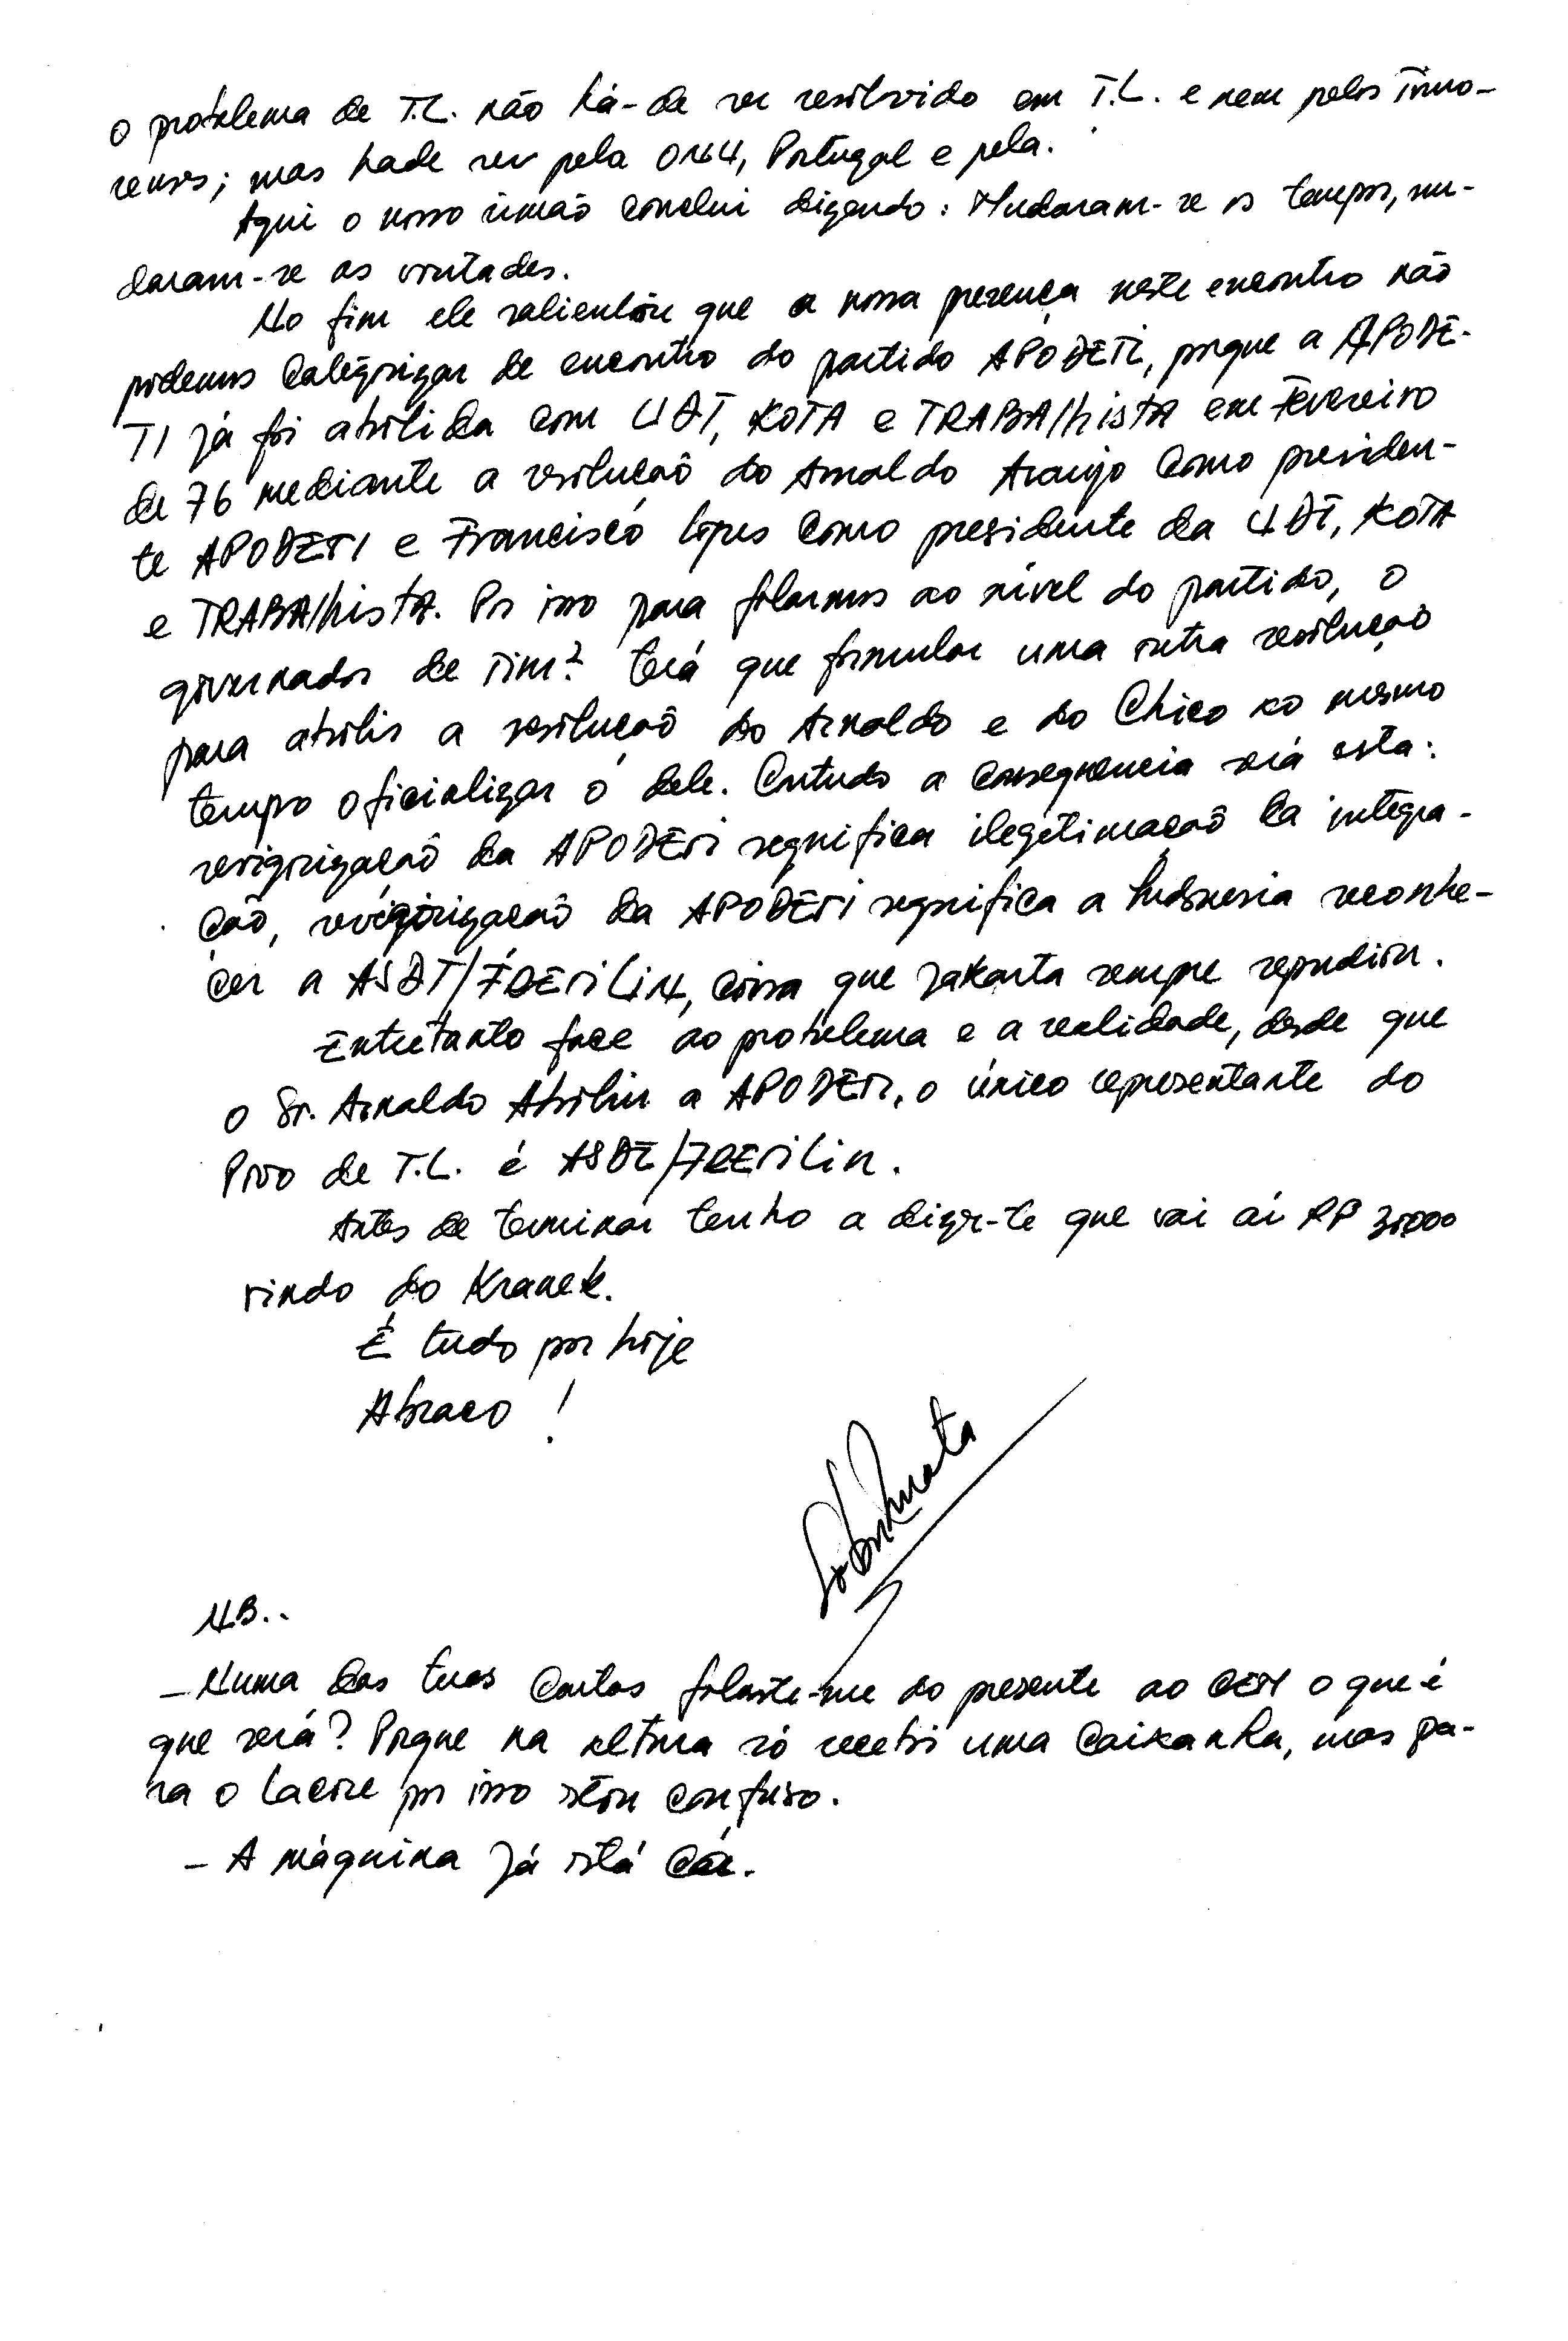 o problema de T.L. não há-de ser resolvido em T.L. e nem pelos Timo-
renses; mas hade ser pela ONU, Portugal e pela.
Aqui o nosso irmaõ conclui dizendo: Mudaram-se os tempos, mu-
daram-se as vontades.
No fim ele salientou que a nossa presença neste encontro não
podemos categorizar de encontro do partido APODETI, porque a APODE-
TI já foi abolida com UDT, KOTA e TRABAlhistA em Fevereiro
de 76 mediante a resoluçaõ do Arnaldo Araujo como presiden-
te APODETI e Francisco lopes como presidente da UDT, KOTA
e TRABAlhistA. Por isso para falarmos ao nível do partido, o
governador de Tim? terá que formular uma outra resoluçaõ
para abolir a resoluçaõ do Arnaldo e do Chico no mesmo
tempo oficializar o dele. Contudo a consequencia será esta:
revigorizaçaõ da APODETI segnifica ilegitimaçaõ da integra-
ção, revigorizaçaõ da APODETI segnifica a Indonesia reconhe-
cer a ASDT/FRETiLiN, coisa que Jakarta sempre repudiou.
Entretanto face ao problema e a realidade, desde que
o Sr. Arnaldo Aboliu a APODETI, o único representante do
Povo de T.L. é ASDT/FRETiLin.
Antes de terminar tenho a dizer-te que vai aí RP 30,000
vindo do Kranek.
É tudo por hoje
Abraço !
NB..
– Numa das tuas cartas falaste-me do presente ao o que é
que será? Porque na altura só recebi uma caixanha, mas pa-
ra o Lacore por isso estou confuso.
– A máquina já está cá.